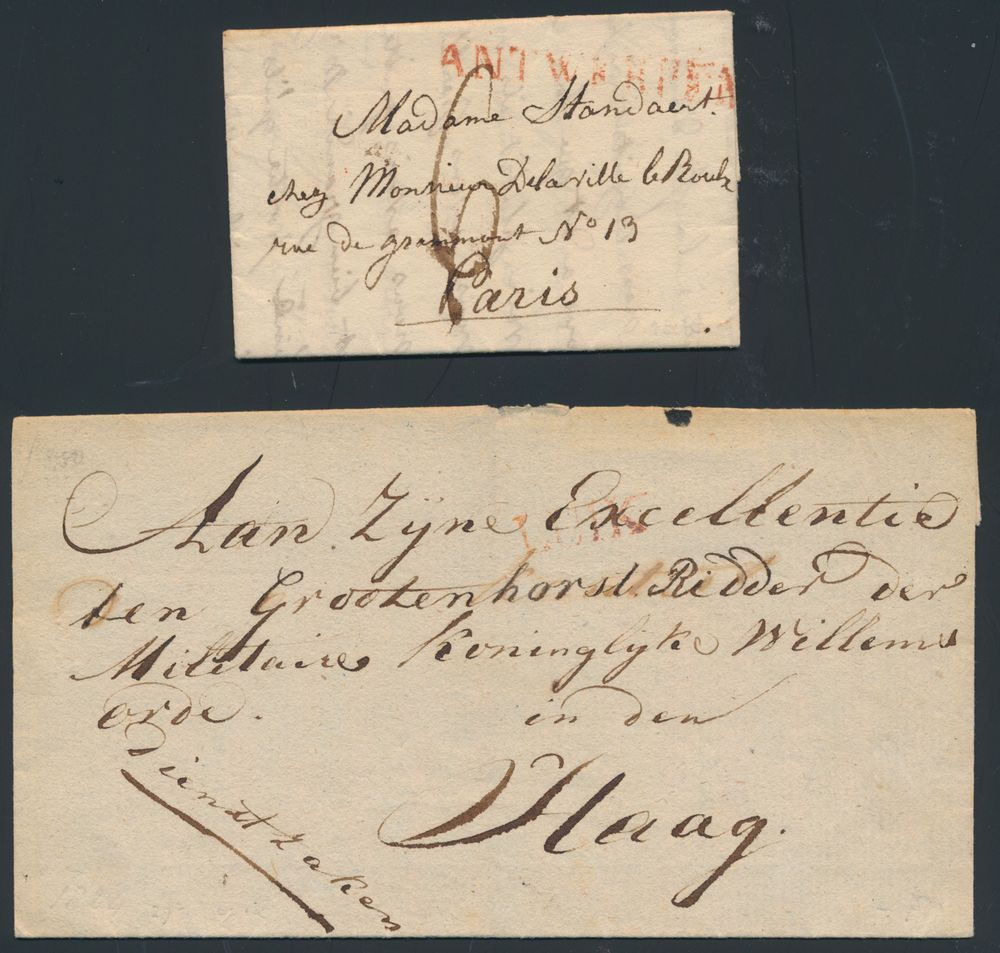 ANTWERPEN
Madame Standaert
chez Monsieur Delaville le Roulx
rue de grammont No 13
Paris
Aan Zyne Excellentie
den Grootenhorst Ridder der
Militaire Koninglyke Willems
orde.
in den
Haag.
Dienst zaken